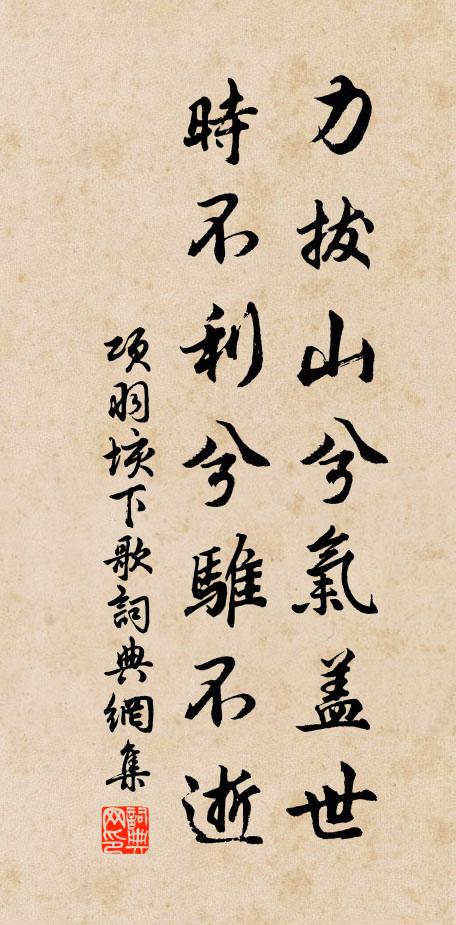 力拔山兮氣蓋世
時不利兮騅不逝
项羽垓下歌詞典網集
詞典网印